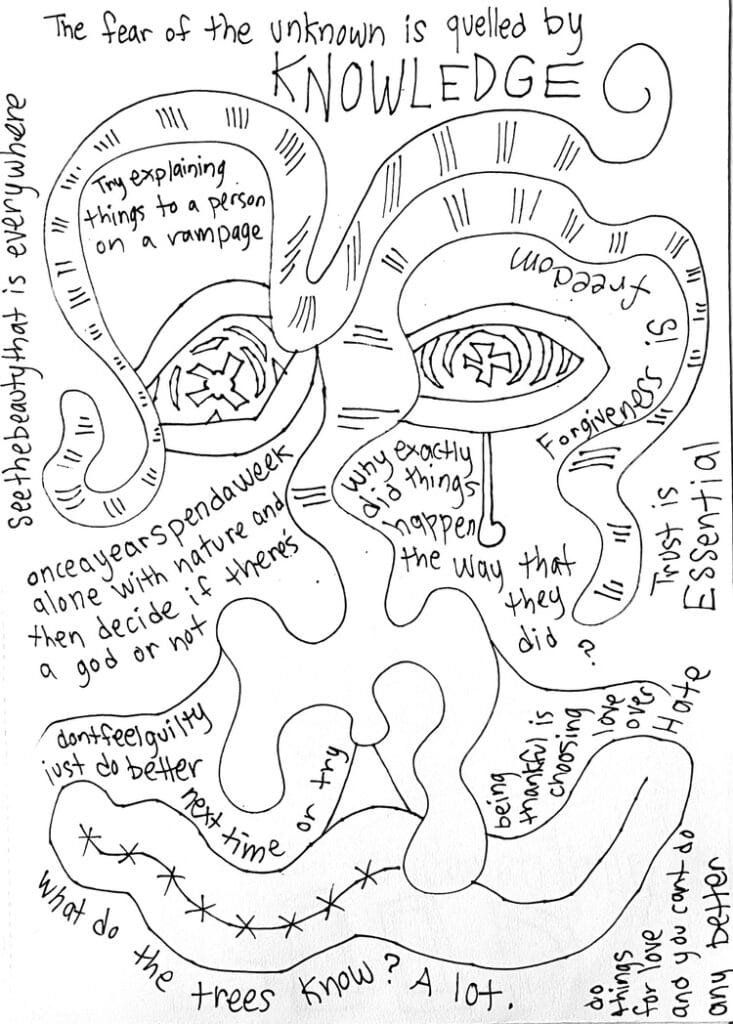 The fear of the unknown is quelled by
KNOWLEDGE
See the beauty that is everywhere
Try explaining
things to a person
on a rampage
freedom
is
Forgiveness
Trust is
Essential
Why exactly
did things
happen
the way that
they
did ?
once a year spend a week
alone with nature and
then decide if there's
a god or not
dont feel guilty
just do better
next time or try
being
thankful is
choosing
love
over
Hate
What do the trees know? A lot.
do
things
for love
and you cant do
any better